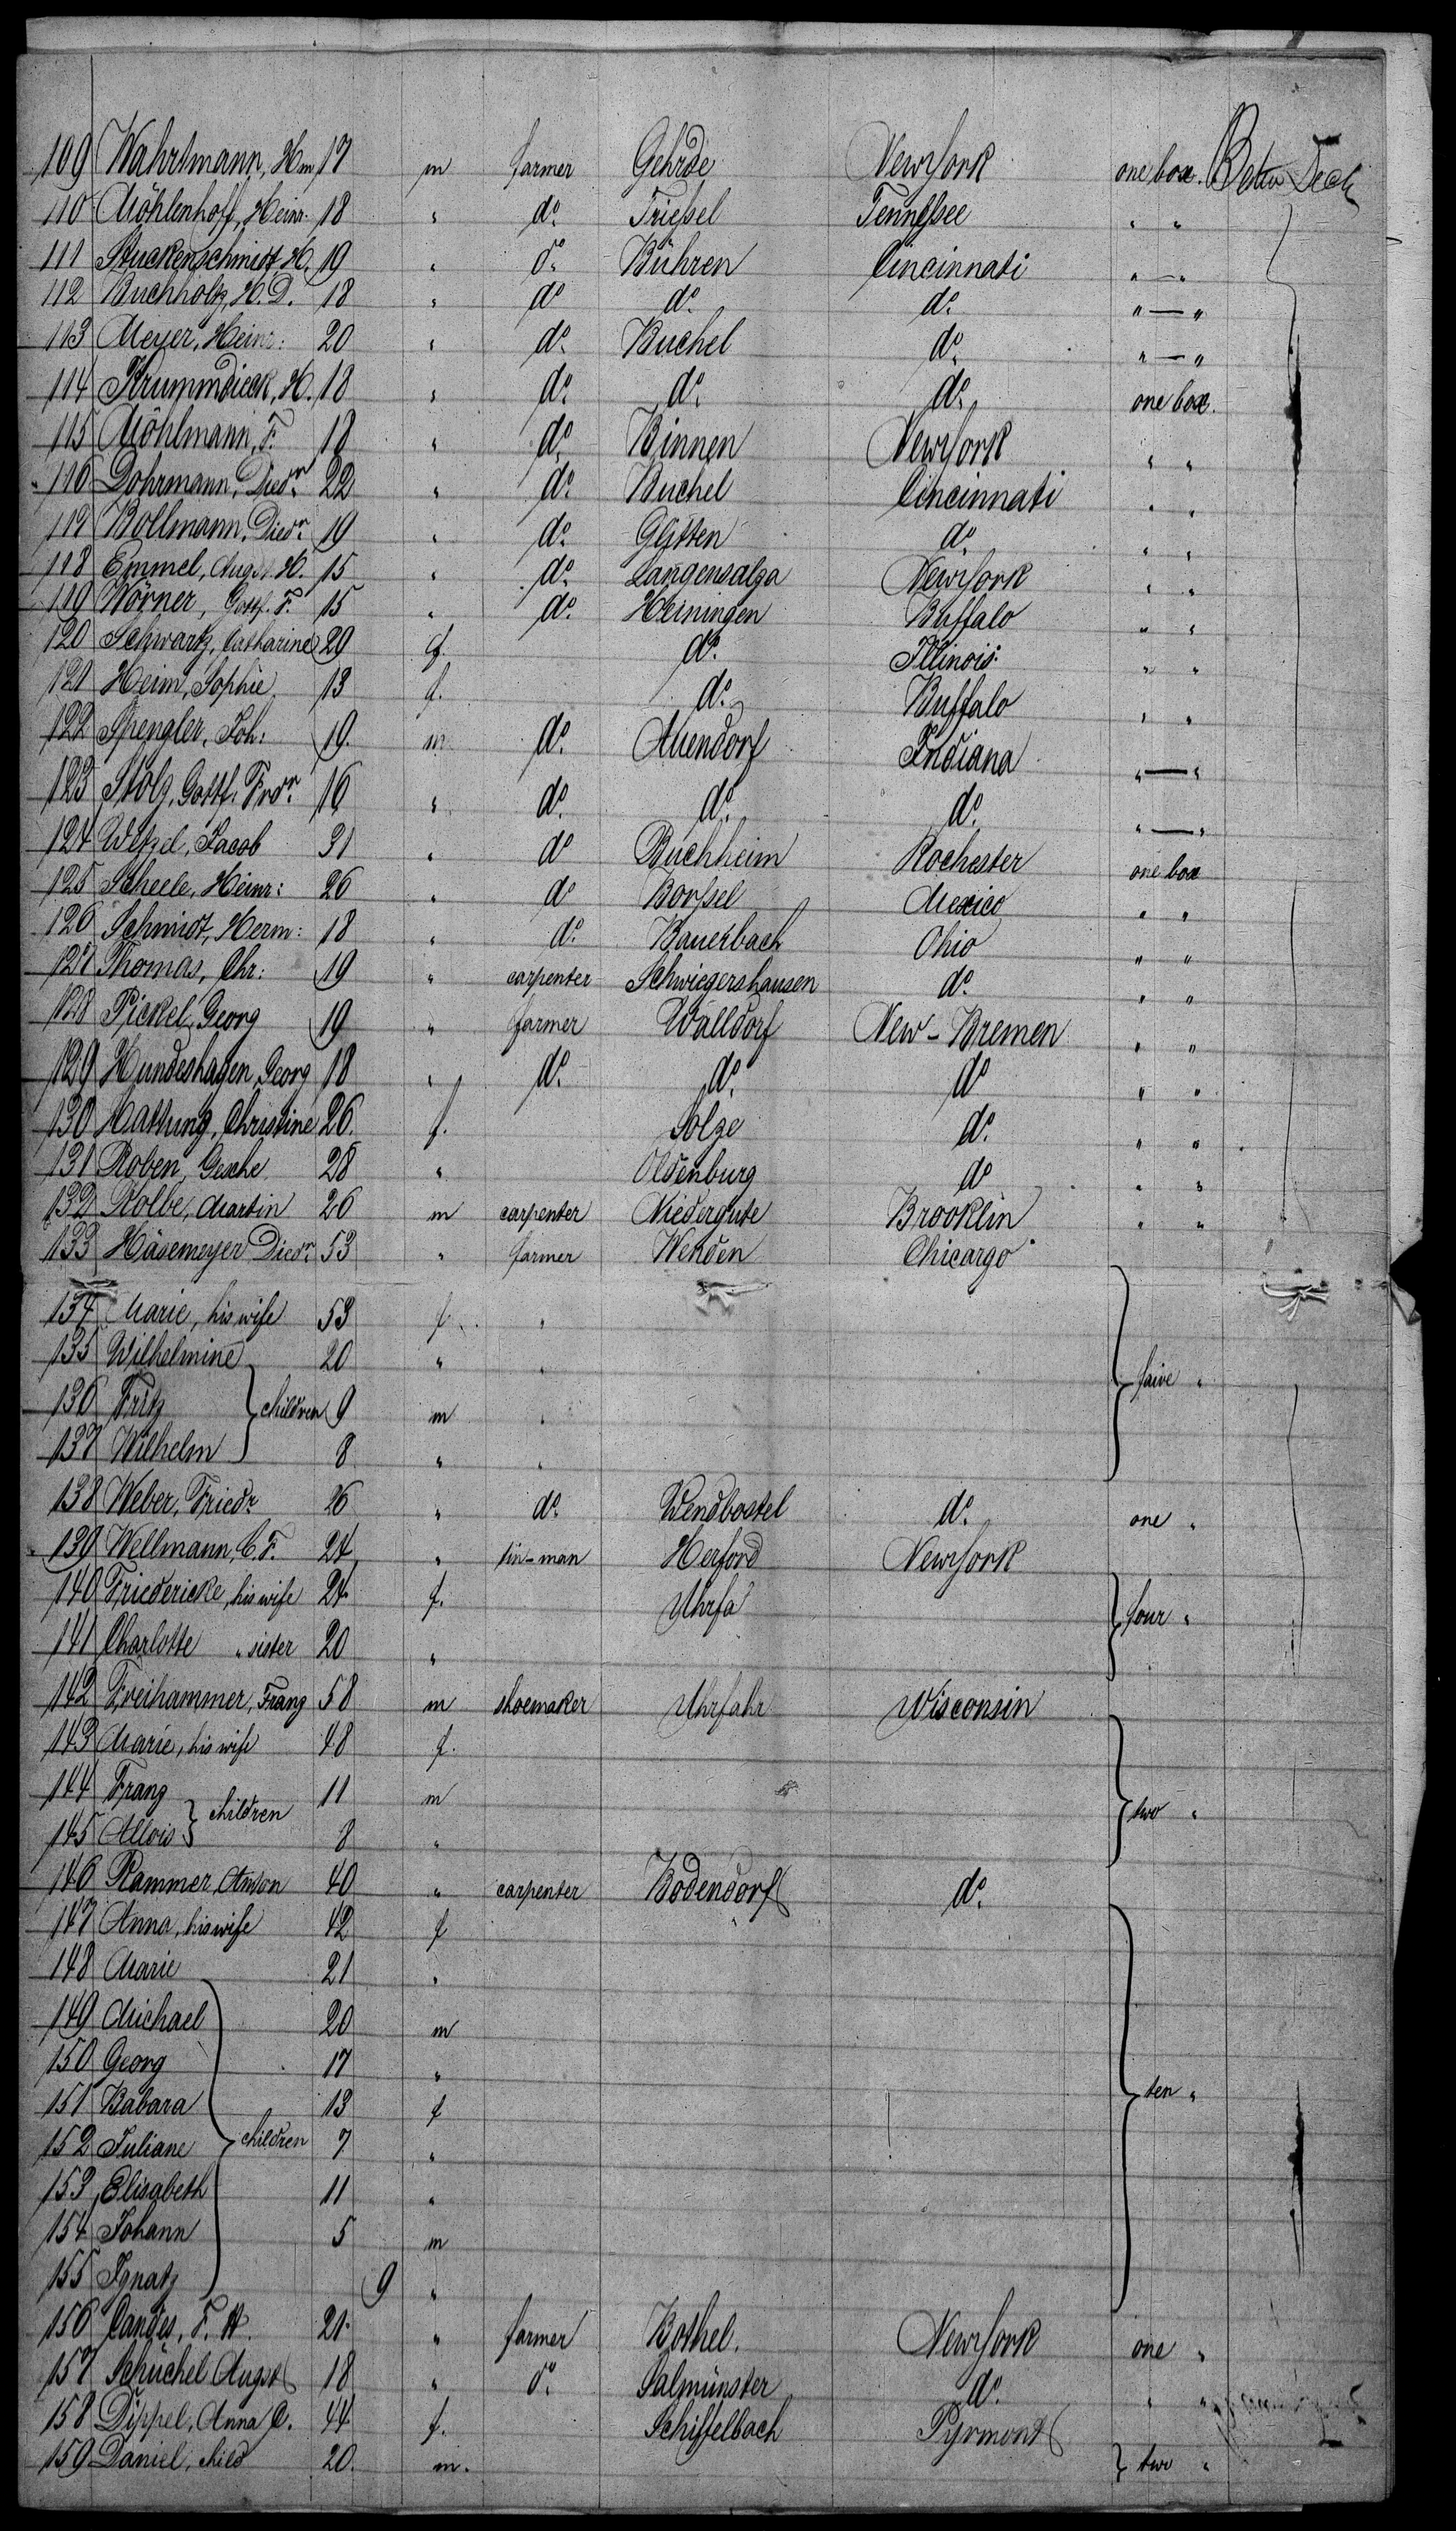 109 Wahrtmann, Hm 17 m farmer Gehrde NewYork one box. Betw Deck
110 Möhlenhoff, Heinr: 18 " do. Trießel Tennessee " "
111 Stuckenschmidt H. 19 " do. Bühren Cincinnati " — "
112 Buchholz, H. D. 18 " do do. do. " — "
113 Meyer, Heinr: 20 " do. Buchel do. " — "
114 Krummdieck, H. 18 " do. do. do. one box.
115 Möhlmann, F. 18 " do. Binnen NewYork " "
116 Dohrmann, Diedr. 22 " do. Buchel Cincinnati " "
117 Bollmann, Diedr. 19 " do. Glissen do. " "
118 Emmel, Augst. H. 15 " do. Langensalza NewYork " "
119 Wörner, Gottf. F. 15 " do. Heiningen Buffalo " "
120 Schwartz, Catharine 29 f. do. Illinois. " "
121 Heim, Sophie. 13 f. do. Buffalo " "
122 Spengler, Joh: 19. m do. Allendorf Indiana " — "
123 Stolz, Gottf. Frdr. 16 " do. do. do. " — "
124 Wetzel, Jacob 31 " do Buchheim Rochester one box
125 Scheele, Heinr: 26 " do Borßel Mexico " "
126 Schmidt, Herm: 18 " do. Bauerbach Ohio " "
127 Thomas, Chr: 19 " carpenter Schwiegershausen do. " "
128 Pickel, Georg 19 " farmer Walldorf New-Bremen " "
129 Hundeshagen, Georg 18 " do. do. do " "
130 Hattung, Christine 26. f. Solze do. " "
131 Roben, Gesche 28 " Oldenburg do " "
132 Kolbe, Martin 26 m carpenter Niedergute Brooklin " "
133 Häsemeyer Diedr. 53 " farmer Wenden Chicargo
134 Marie, his wife 53 f. "
135 Wilhelmine 20 " " faive "
136 Fritz children 9 m "
137 Wilhelm 8 " "
138 Weber, Friedr. 26 " do. Wendbostel do. one "
139 Wellmann, C. F. 24 " tin-man Herford NewYork
140 Friedericke, his wife 24. f. Uhrfa four "
141 Charlotte " sister 20 "
142 Freihammer, Franz 58 m shoemaker Uhrfahr Wisconsin
143 Marie, his wife 48 f.
144 Franz children 11 m two "
145 Allois 8 "
146 Rammer, Anton 40 " carpenter Bodendorf do.
147 Anna, his wife 42 f
148 Marie 21 "
149 Michael 20 m
150 Georg 17 "
151 Babara 13 f ten "
152 Juliane children 7 "
153 Elisabeth 11 "
154 Johann 5 m
155 Ignatz 9 "
156 Candes, F. H. 21. " farmer Bothel. NewYork one "
157 Schüchel Augst 18 " do. Salmünster do. " "
158 Dippel, Anna C. 44 f. Schiffelbach Pyrmont
159 Daniel, child 20. m. two "